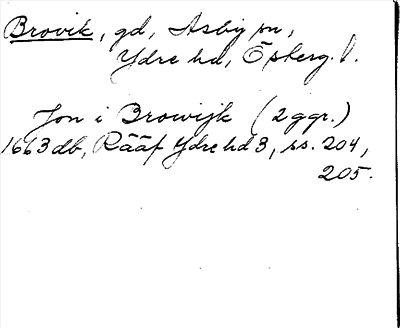 Brovik, gd, Asby sn,
Ydre hd, Österg. l.
Jon i Browijk (2 ggr.)
1663 db, Rääf Ydre hd 3, ss. 204,
205.